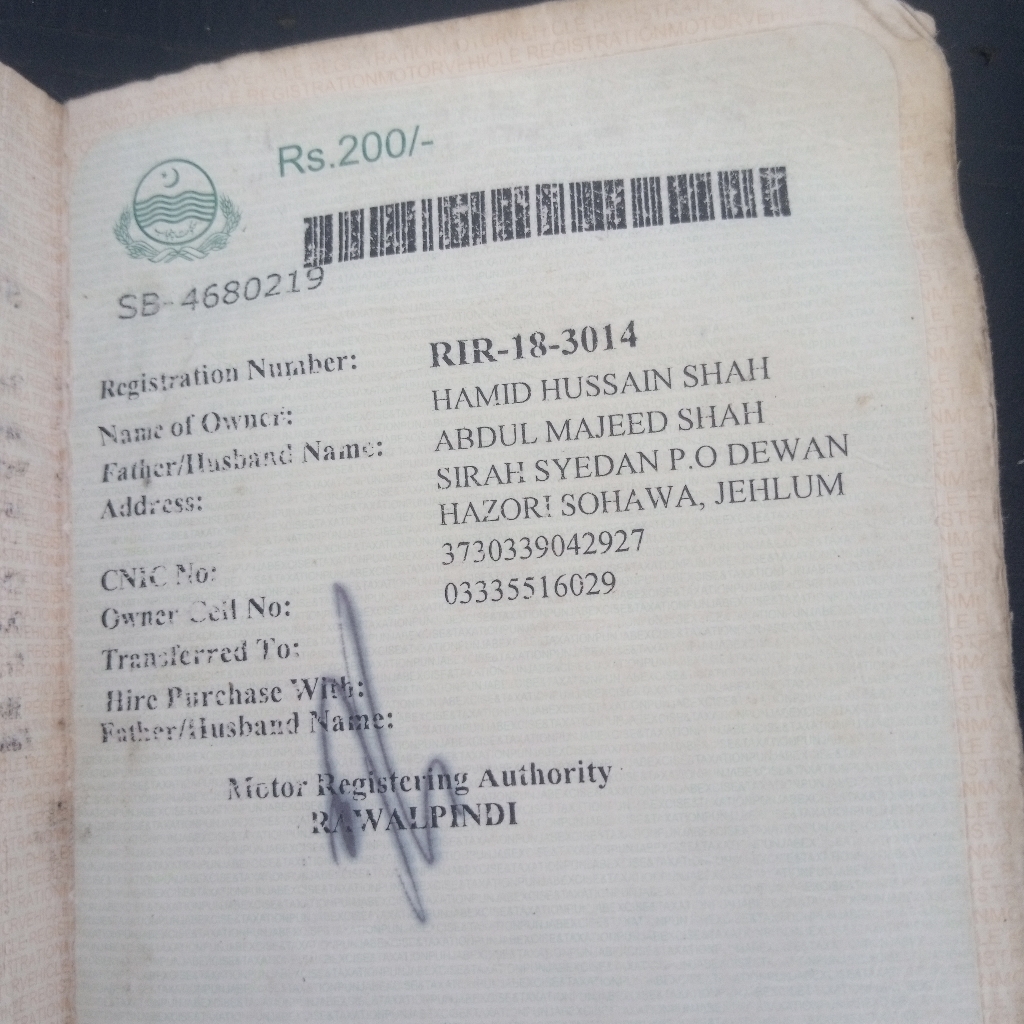 Rs.200/-
SB-4680219
Registration Number: RIR-18-3014
Name of Owner: HAMID HUSSAIN SHAH
Father/Husband Name: ABDUL MAJEED SHAH
Address: SIRAH SYEDAN P.O DEWAN
HAZORI SOHAWA, JEHLUM
CNIC No: 3730339042927
Owner Cell No: 03335516029
Transferred To:
Hire Purchase With:
Father/Husband Name:
Motor Registering Authority
RAWALPINDI